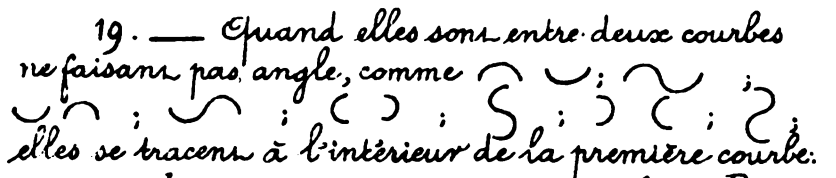 19. — Quand elles sont entre deux courbes
ne faisant pas angle, comme ; ;
; ; ; ; ;
elles se tracent à l'intérieur de la première courbe: